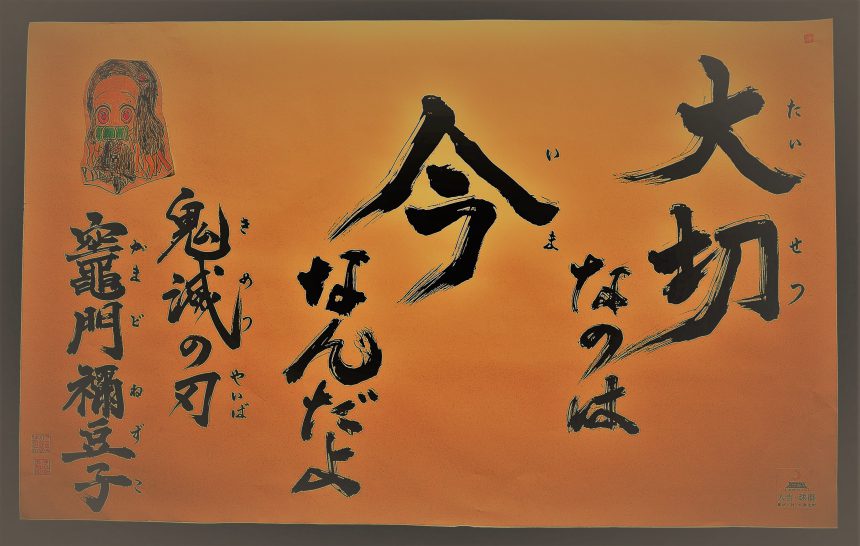 大切
たいせつ
なのは
今
いま
なんだよ
鬼滅の刃
きめつ やいば
竈門禰豆子
かまど ねずこ
人吉・球磨